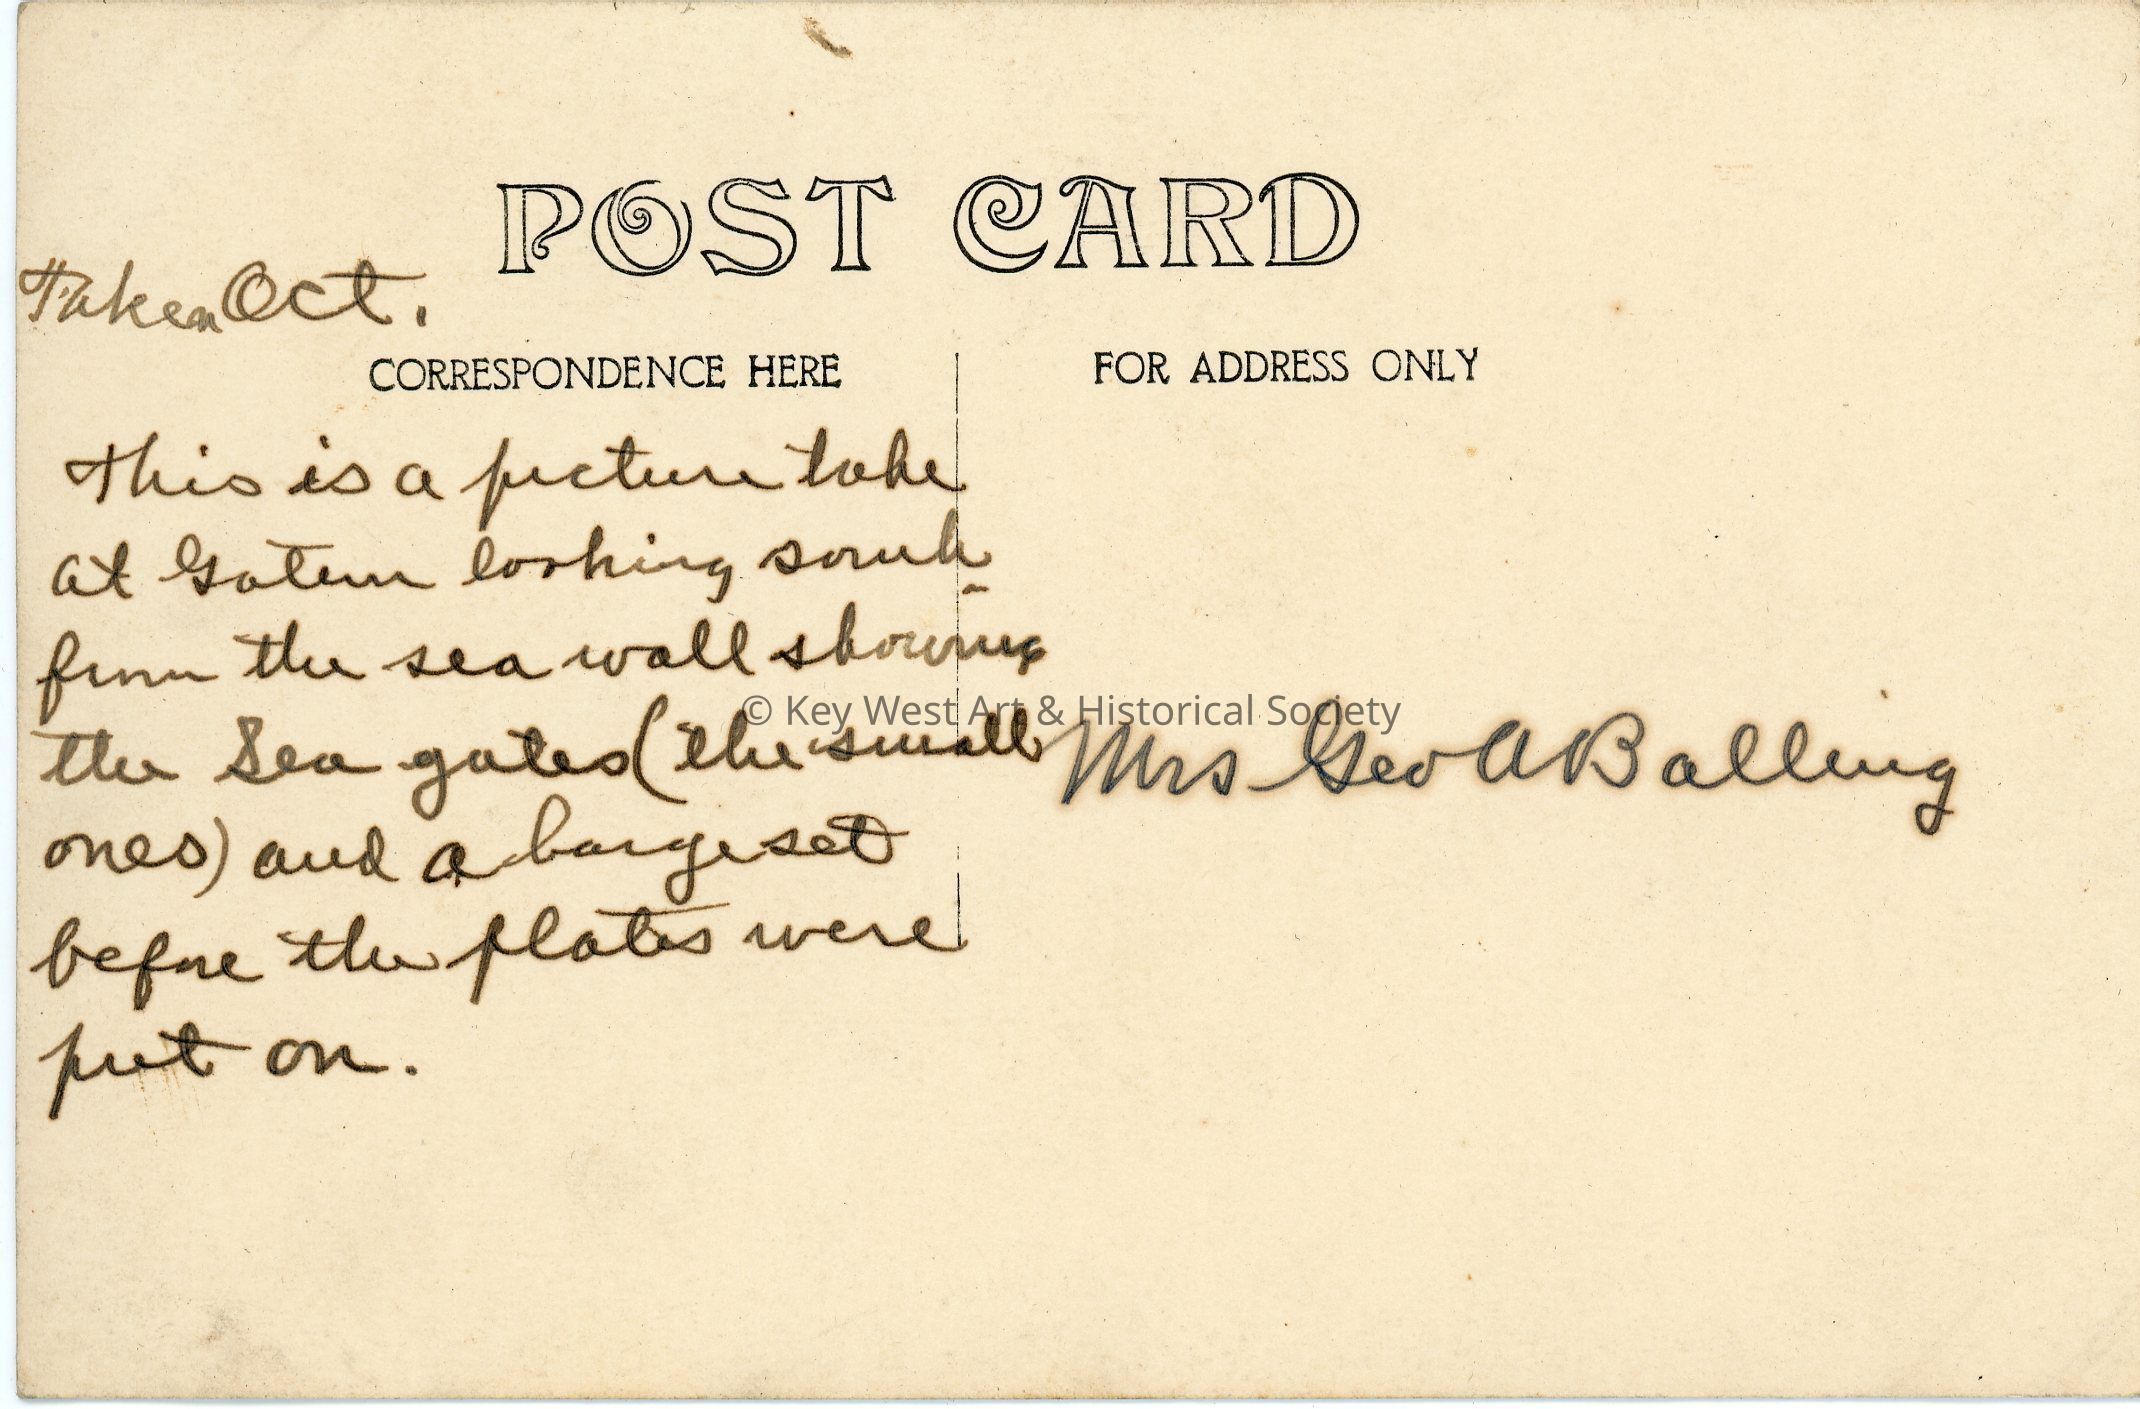 POST CARD
Taken Oct.
CORRESPONDENCE HERE
FOR ADDRESS ONLY
This is a picture take
at Gatun looking south
from the sea wall showing
the Sea gates (the small
ones) and a barge set
before the plates were
put on.
© Key West Art & Historical Society
Mrs Geo A Balling